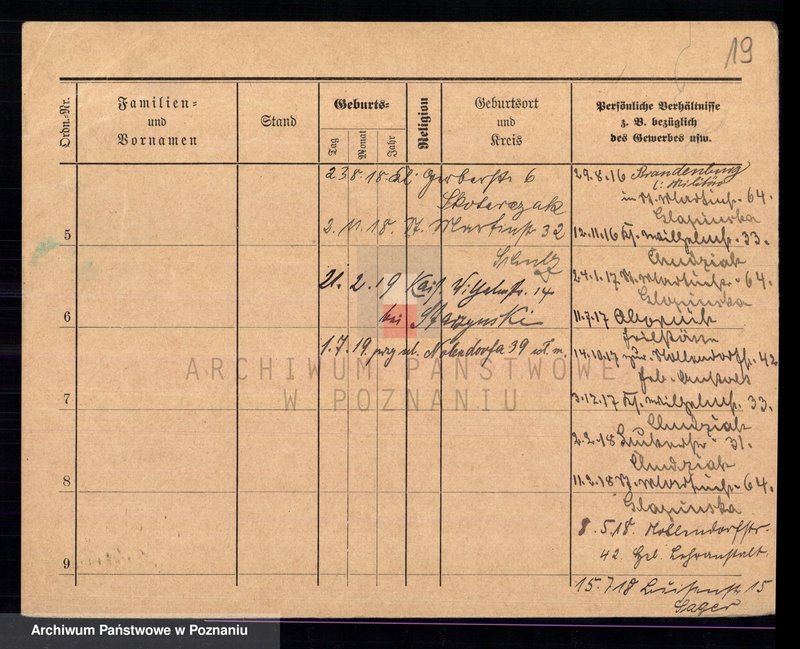 19
Ordn.-Nr.
Familien-
und
Vornamen
Stand
Geburts-
Tag
Monat
Jahr
Religion
Geburtsort
und
Kreis
Persönliche Verhältnisse
z. B. bezüglich
des Gewerbes usw.
23.8.18. Kl. Gerberstr. 6
Skoterczak
2.11.18. St. Martinstr. 32
Schulz
21.2.19 Kais. Wilhelmstr. 14
bei Starzynski
1.7.19. przy ul. Nolendorfa 39
5
6
7
8
9
29.8.16 Brandenburg
Militär
in St. Martinstr. 64.
Glapinska
12.11.16 Ks. Wilhelmstr. 33.
Chudziak
24.1.17 St. Martinstr. 64.
Glapinska
11.7.17
14.10.17 Nollendorfstr. 42
3.12.17 Ks. Wilhelmstr. 33.
Chudziak
2.2.18 31.
Chudziak
11.2.18 St. Martinstr. 64.
Glapinska
8.5.18. Nollendorfstr.
42. Lehranstalt
15.7.18 Luisenstr. 15
Sager
ARCHIWUM PAŃSTWOWE
W POZNANIU
Archiwum Państwowe w Poznaniu